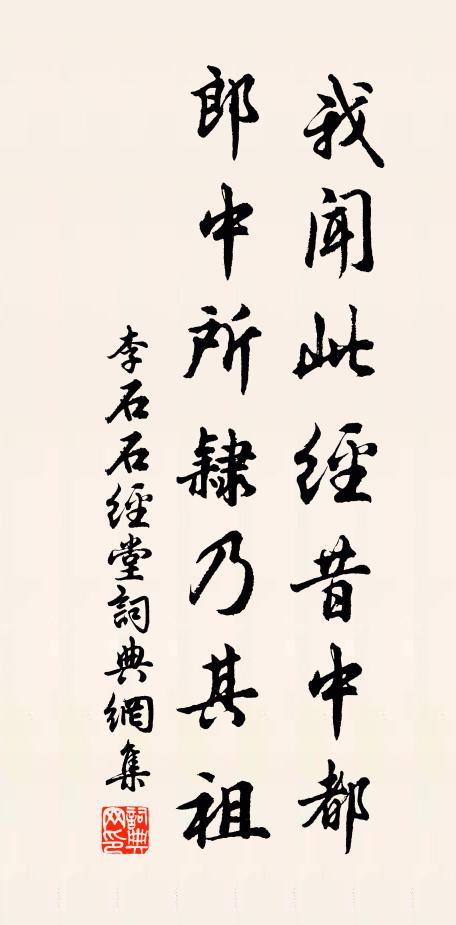 我聞此經昔中都
郎中所隸乃其祖
李石石經堂詞典網集
詞典网印